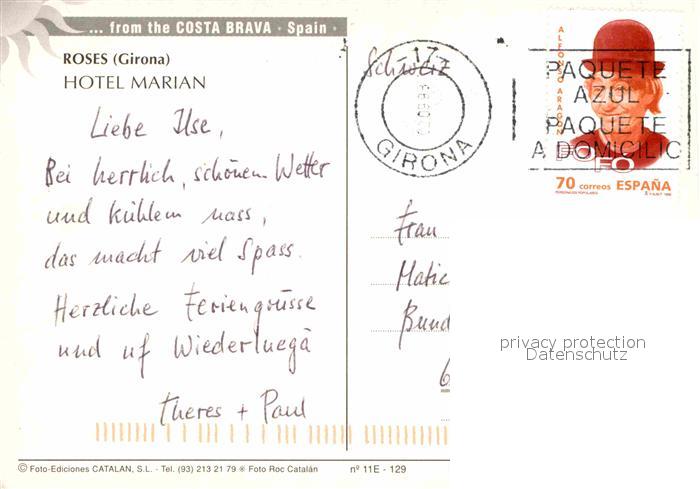 ... from the COSTA BRAVA · Spain ·
ROSES (Girona)
HOTEL MARIAN
Liebe Ilse,
Bei herrlich, schönem Wetter
und kühlem nass,
das macht viel Spass.
Herzliche Feriengrüsse
und uf Wiederluegä
Theres + Paul
Schweiz
17
GIRONA
PAQUETE
AZUL
PAQUETE
A DOMICILIO
ALFONSO ARAGON
FOFO
70 correos ESPAÑA
PERSONAJES POPULARES
Frau
Matic
Bund
6
privacy protection
Datenschutz
© Foto-Ediciones CATALAN, S.L. - Tel. (93) 213 21 79 ※ Foto Roc Catalán
nº 11E - 129